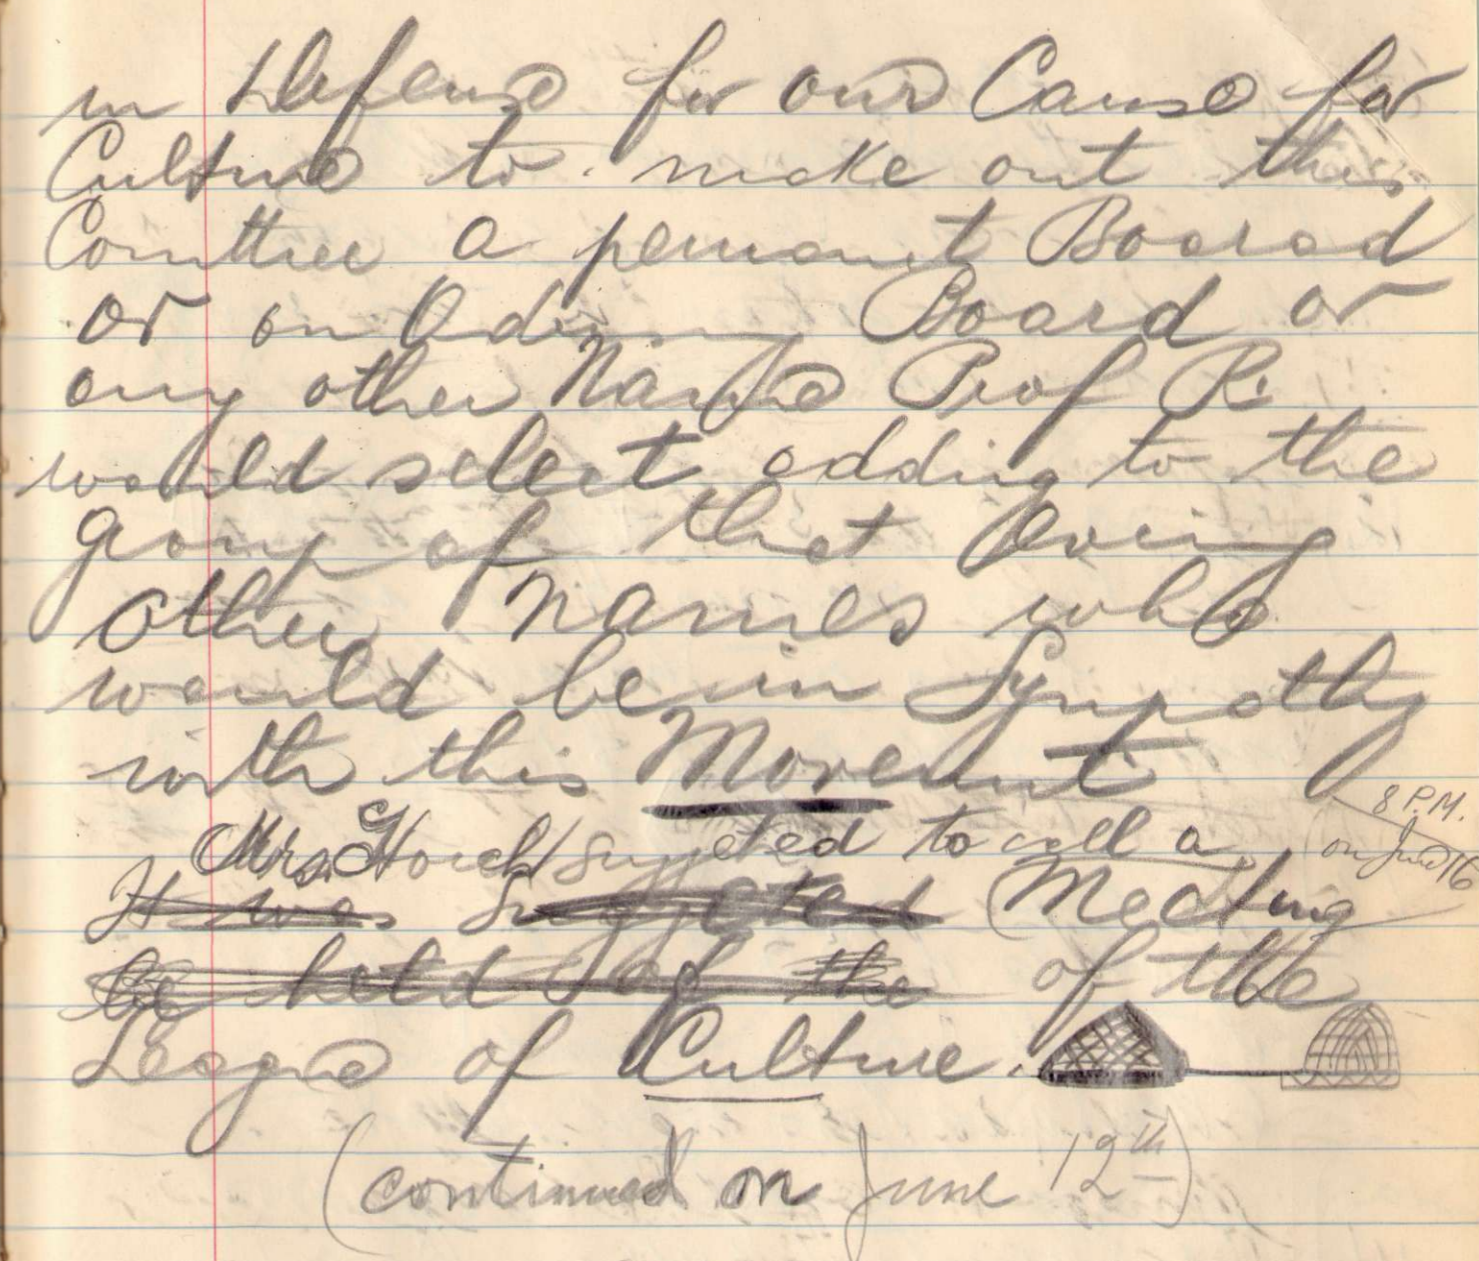 in Defense for our Cause for
Culture to make out this
Comttee a permant Boarad
or an Board or
any other Name Prof R.
would select adding to the
group of that
other names who
would be in Sympathy
with this Movement
8 P.M.
Mrs. Horch suggested to call a
on June 16
It was Suggested Meeting
be held of the of the
League of Culture.
(continued on June 12th)